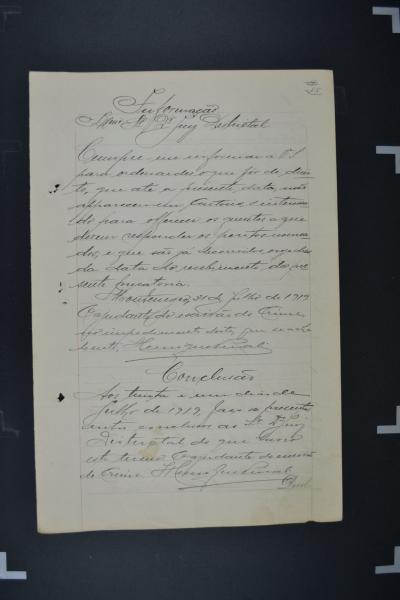 Informação
Illmo. Sr. Dr. Juiz Districtal
Cumpre-me informar a V. S.
para ordenardes o que fôr de direi-
to, que até a presente data, não
appareceu em Cartorio o intima-
do para offerecer os quesitos a que
devem responder os peritos nomea-
dos, e que são já decorridos
da data do recebimento da pre-
sente precatoria.
31 de Julho de 1919
O ajudante do escrivão do Crime
no impedimento deste, que o
Conclusão
Aos trinta e um dias de
Julho de 1919, faço a presente
conclusos ao Sr. Dr. Juiz
Districtal do que lavro
este termo. O ajudante do escrivão
do Crime